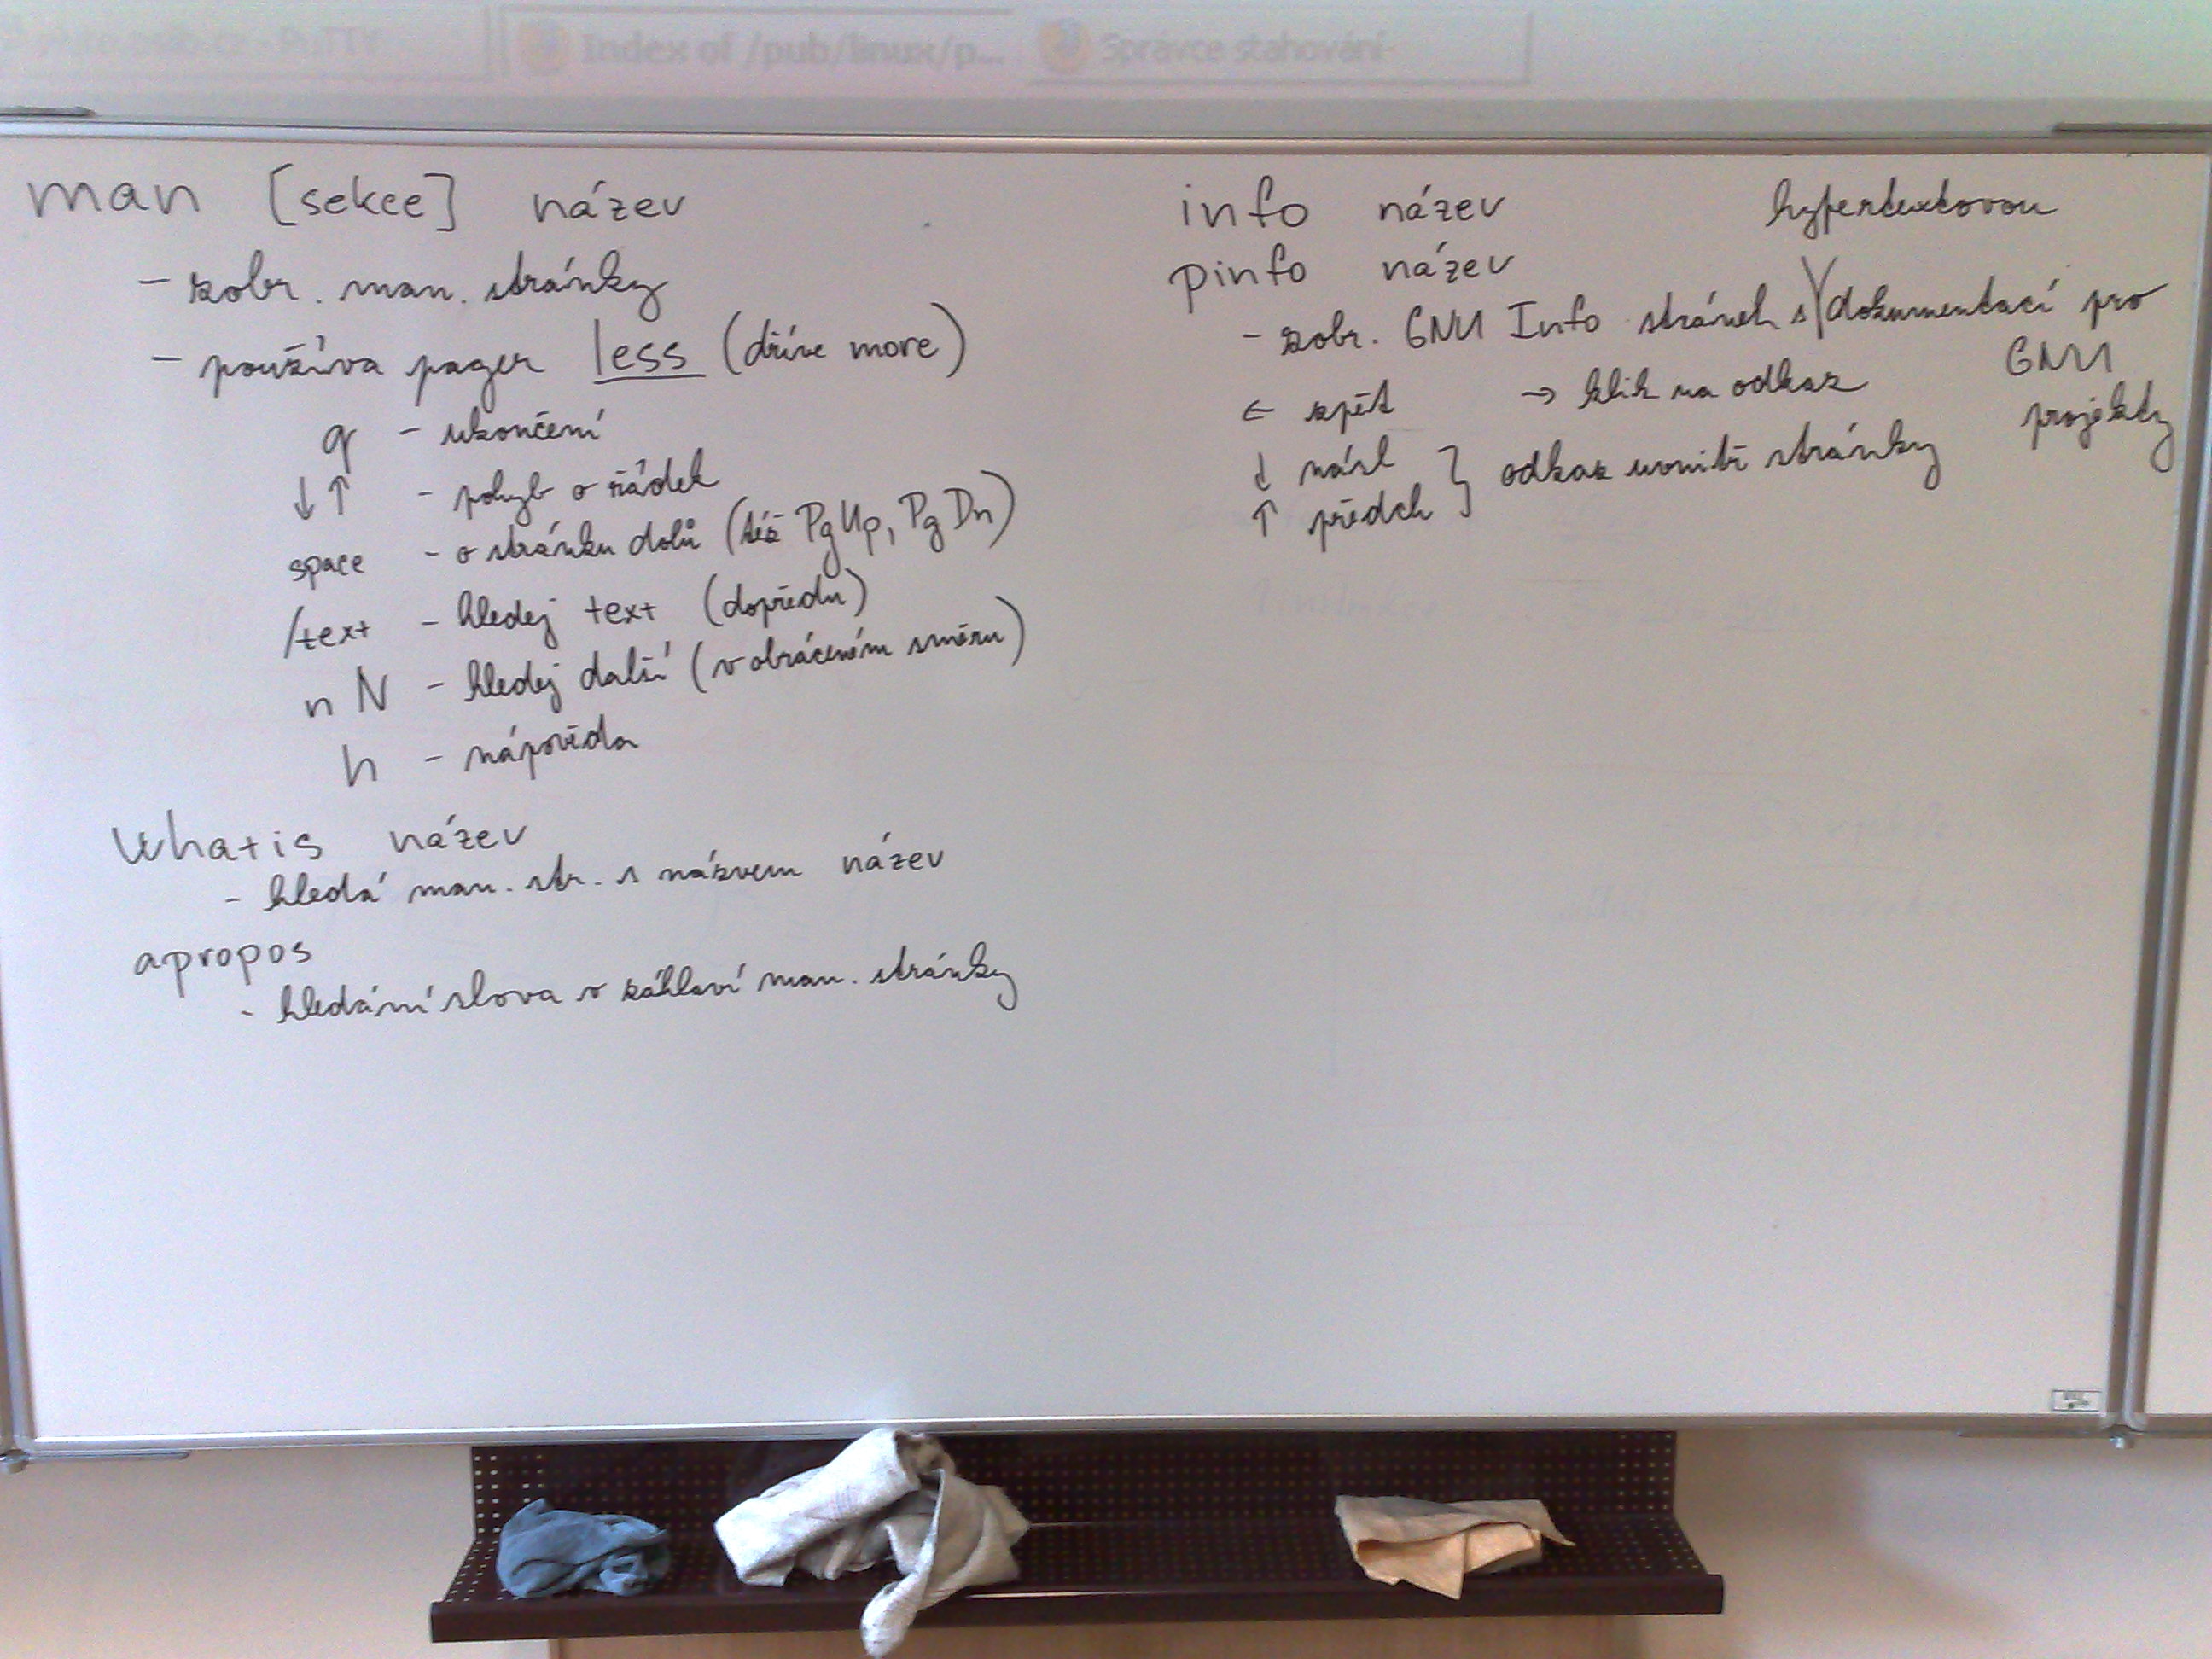 Index of /pub/linux/p...
Správce stahování
man [sekce] název
- zobr. man. stránky
- používa pager less (dříve more)
q - ukončení
↓↑ - pohyb o řádek
space - o stránku dolů (též PgUp, PgDn)
/text - hledej text (dopředu)
n N - hledej další (v obráceném směru)
h - nápověda
whatis název
- hledá man. str. s názvem název
apropos
- hledání slova v záhlaví man. stránky
info název
pinfo název
hypertextovou
- zobr. GNU Info stránek s dokumentací pro
GNU
projekty
← zpět → klik na odkaz
↓ násl } odkaz uvnitř stránky
↑ předch